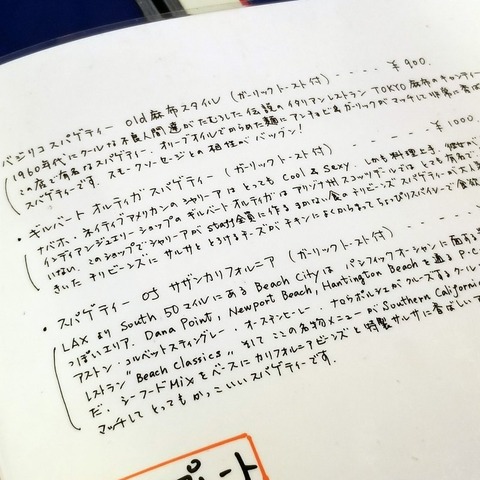 バジリコ スパゲティー Old 麻布スタイル (ガーリックトースト付) ‐‐‐‐ ¥900.
(1960年代にクールな不良人間達がたむろした伝説のイタリアンレストラン TOKYO 麻布のキャンティー
この店で有名なスパゲティー. オリーブオイルでからめた麺にアンチョビ&ガーリックがマッチして非常に香ば
スパゲティーです. スモークソーセージとの相性がバツグン!
・ギルバート オルティガ スパゲティー (ガーリックトースト付) ‐‐‐‐ ¥1000.
ナバホ. ネイティブアメリカンのシャリーアはとっても Cool & Sexy. しかも料理上手.
インディアンジュエリーショップのギルバート オルティガはアリゾナ州 スコッツデールではとても有名で
いない. このショップでシャリーアが staff全員に作るまかない食のチリビーンズスパゲティーが大人気
きいたチリビーンズにサルサととろけるチーズがチキンによくからまってちょっぴりスパイシーで食欲
・スパゲティー of サザンカリフォルニア (ガーリックトースト付) ‐‐‐‐
LAX より South 50マイルにある Beach City は パシフィックオーシャンに面する
っぽいエリア. Dana Point, Newport Beach, Hantington Beach を通る P.C.
アストン・コルベットスティングレー・オースチンヒーレー・ナロウポルシェがクルーズするクール
レストラン "Beach Classics" そしてここの名物メニューが Southern California
だ. シーフードMixをベースにカリフォルニアビーンズと特製サルサに香ばしい
マッチしてとってもかっこいいスパゲティーです.